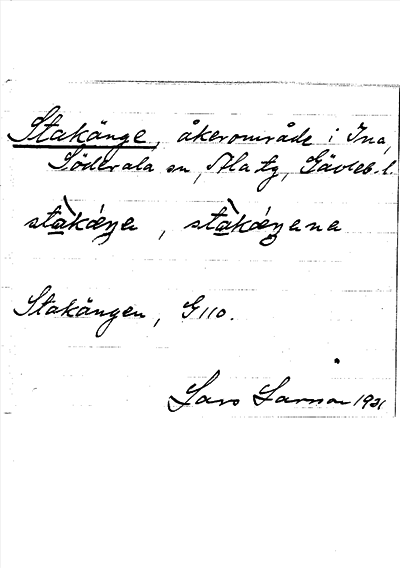 Stakänge, åkerområde i Ina,
Söderala sn, Ala tg, Gävleb. l.
stàkǽŋa, stàkǽŋana
Stakängen, G110.
Lars Larsson 1921